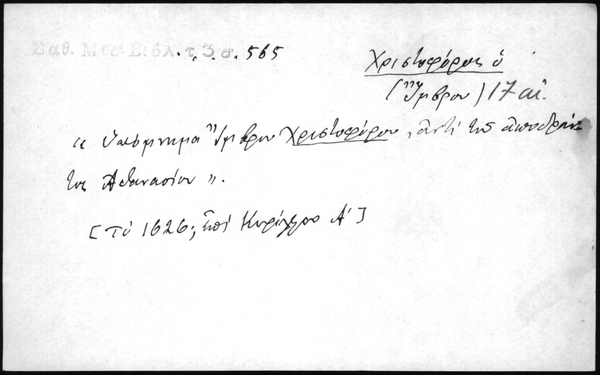 Σαθ. Μεσ. Βιβλ. τ. 3 σ. 565
Χριστοφόρος ὁ
(Ἴμβρου) 17 αἰ.
« Ὑπόμνημα Ἴμβρου Χριστοφόρου, ἀντὶ τοῦ ἀποδράν
τος Ἀθανασίου ».
[Τῷ 1626, ἐπὶ Κυρίλλου Α΄]